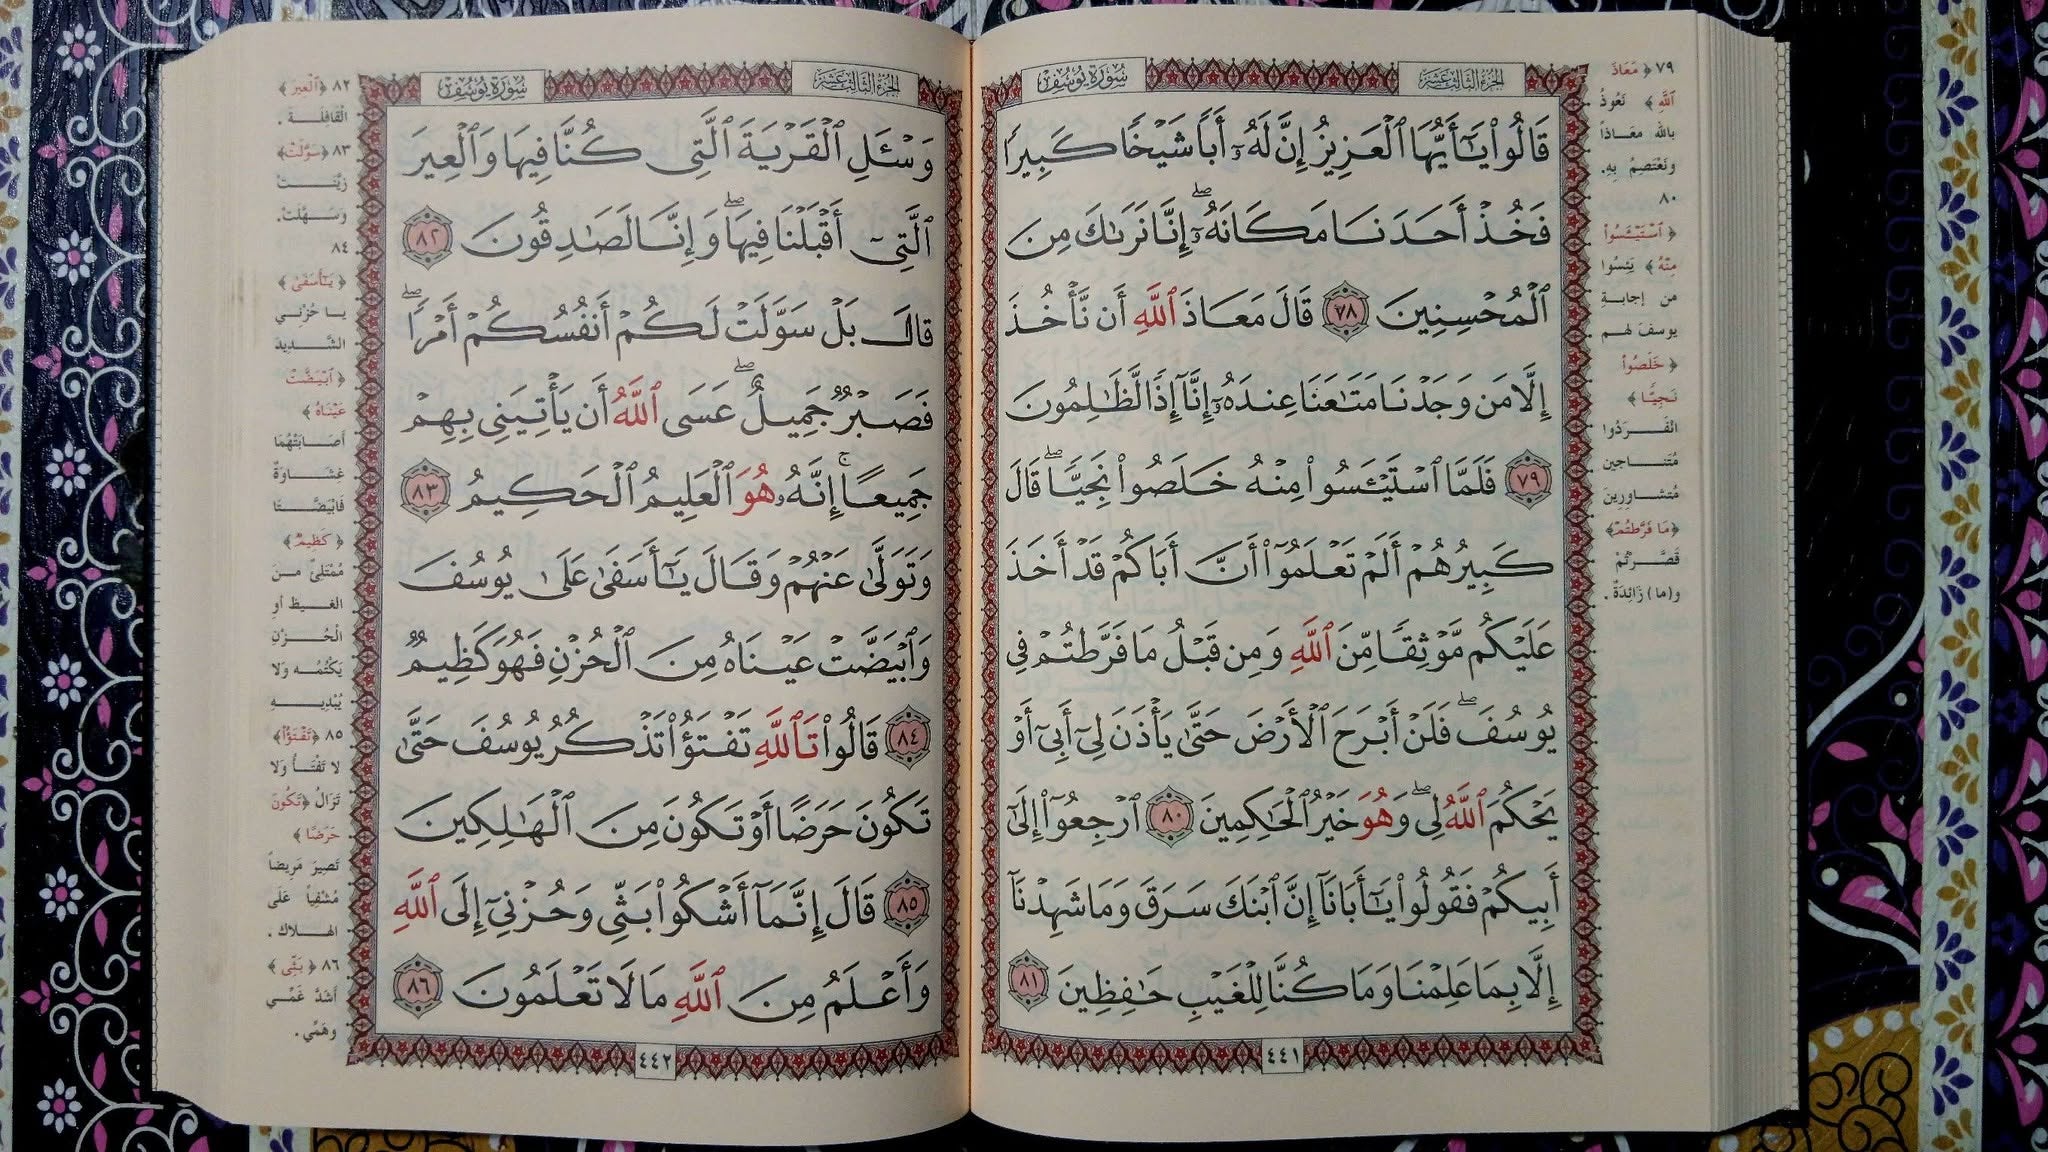 سُورَةُ يُوسُفَ
الجُزْءُ الثَّالِثَ عَشَرَ
قَالُوا۟ يَٰٓأَيُّهَا ٱلْعَزِيزُ إِنَّ لَهُۥٓ أَبًا شَيْخًا كَبِيرًا
فَخُذْ أَحَدَنَا مَكَانَهُۥٓ ۖ إِنَّا نَرَىٰكَ مِنَ
ٱلْمُحْسِنِينَ ٧٨ قَالَ مَعَاذَ ٱللَّهِ أَن نَّأْخُذَ
إِلَّا مَن وَجَدْنَا مَتَٰعَنَا عِندَهُۥٓ إِنَّآ إِذًا لَّظَٰلِمُونَ
٧٩ فَلَمَّا ٱسْتَيْـَٔسُوا۟ مِنْهُ خَلَصُوا۟ نَجِيًّا ۖ قَالَ
كَبِيرُهُمْ أَلَمْ تَعْلَمُوٓا۟ أَنَّ أَبَاكُمْ قَدْ أَخَذَ
عَلَيْكُم مَّوْثِقًا مِّنَ ٱللَّهِ وَمِن قَبْلُ مَا فَرَّطتُمْ فِى
يُوسُفَ ۖ فَلَنْ أَبْرَحَ ٱلْأَرْضَ حَتَّىٰ يَأْذَنَ لِىٓ أَبِىٓ أَوْ
يَحْكُمَ ٱللَّهُ لِى ۖ وَهُوَ خَيْرُ ٱلْحَٰكِمِينَ ٨٠ ٱرْجِعُوٓا۟ إِلَىٰٓ
أَبِيكُمْ فَقُولُوا۟ يَٰٓأَبَانَآ إِنَّ ٱبْنَكَ سَرَقَ وَمَا شَهِدْنَآ
إِلَّا بِمَا عَلِمْنَا وَمَا كُنَّا لِلْغَيْبِ حَٰفِظِينَ ٨١
٤٤١
٧٩ ﴿ مَعَاذَ
ٱللَّهِ ﴾ نَعُوذُ
بالله معَـاذاً
ونَعْتَصِمُ بِهِ.
٨٠
﴿ ٱسْتَيْـَٔسُوا۟
مِنْهُ ﴾ يَئِسُوا
من إجابةِ
يوسفَ لهم
﴿ خَلَصُوا۟
نَجِيًّا ﴾
انْفَـرَدُوا
مُتَنـاجين
مُتشاوِرِينَ
﴿مَا فَرَّطتُمْ﴾
قَصَّـرْتُمْ
و(ما) زَائِدَةٌ .
سُورَةُ يُوسُفَ
الجُزْءُ الثَّالِثَ عَشَرَ
وَسْـَٔلِ ٱلْقَرْيَةَ ٱلَّتِى كُنَّا فِيهَا وَٱلْعِيرَ
ٱلَّتِىٓ أَقْبَلْنَا فِيهَا ۖ وَإِنَّا لَصَٰدِقُونَ ٨٢
قَالَ بَلْ سَوَّلَتْ لَكُمْ أَنفُسُكُمْ أَمْرًا ۖ
فَصَبْرٌ جَمِيلٌ ۖ عَسَى ٱللَّهُ أَن يَأْتِيَنِى بِهِمْ
جَمِيعًا ۚ إِنَّهُۥ هُوَ ٱلْعَلِيمُ ٱلْحَكِيمُ ٨٣
وَتَوَلَّىٰ عَنْهُمْ وَقَالَ يَٰٓأَسَفَىٰ عَلَىٰ يُوسُفَ
وَٱبْيَضَّتْ عَيْنَاهُ مِنَ ٱلْحُزْنِ فَهُوَ كَظِيمٌ
٨٤ قَالُوا۟ تَٱللَّهِ تَفْتَؤُا۟ تَذْكُرُ يُوسُفَ حَتَّىٰ
تَكُونَ حَرَضًا أَوْ تَكُونَ مِنَ ٱلْهَٰلِكِينَ
٨٥ قَالَ إِنَّمَآ أَشْكُوا۟ بَثِّى وَحُزْنِىٓ إِلَى ٱللَّهِ
وَأَعْلَمُ مِنَ ٱللَّهِ مَا لَا تَعْلَمُونَ ٨٦
٤٤٢
٨٢ ﴿ٱلْعِيرَ﴾
الْقَافِلَـة .
٨٣ ﴿سَوَّلَتْ﴾
زَيَّنَـتْ
وَسَـهَّلَتْ.
٨٤
﴿ يَٰٓأَسَفَىٰ ﴾
يـا حُزْنِـي
الشَّـدِيدَ
﴿ ٱبْيَضَّتْ
عَيْنَاهُ ﴾
أَصَـابَتْهُمَا
غِشَـاوَةٌ
فَابْيَضَّـتَا
﴿ كَظِيمٌ ﴾
مُمْتَلِئٌ مـنَ
الغَيـظِ أوِ
الْحُـزْنِ
يَكْتُمُـه وَلا
يُبْدِيـهِ
٨٥ ﴿تَفْتَؤُا۟﴾
لا تَفْتَـأُ وَلا
تَزَالُ ﴿تَكُونَ
حَرَضًا ﴾
تَصِيرَ مَرِيضاً
مُشْفِياً عَلَى
الهَـلاك .
٨٦ ﴿ بَثِّى ﴾
أَشَدُّ غَمِّـي
وهَمِّي .